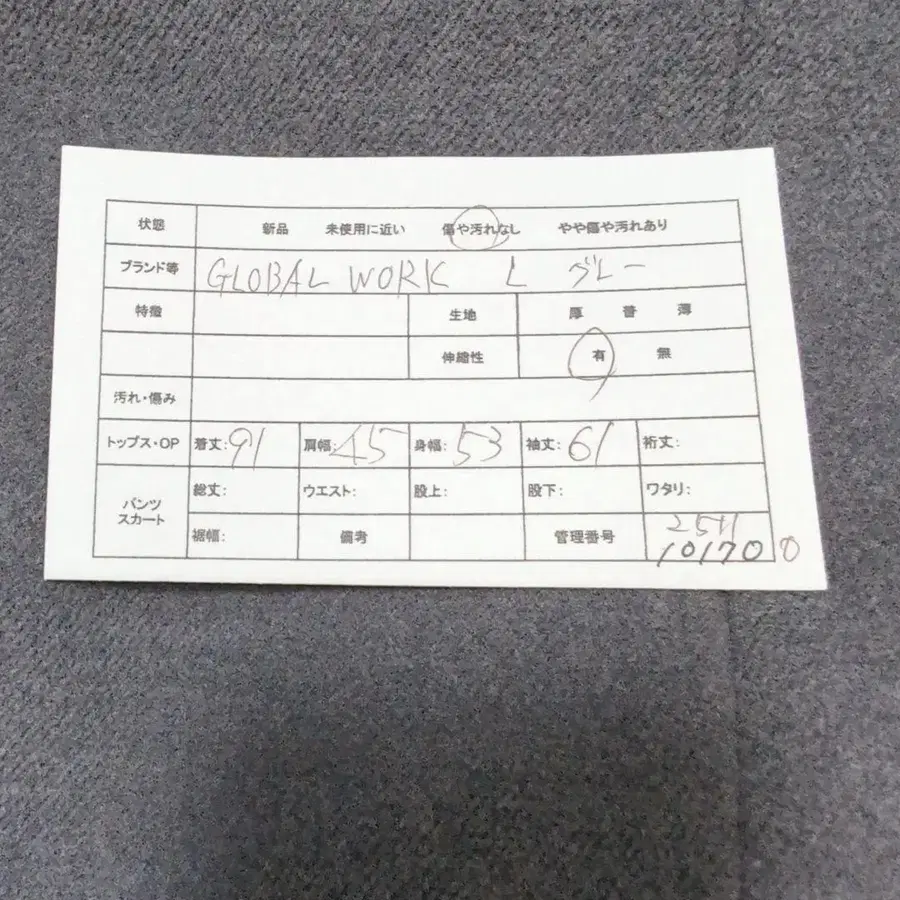 状態 新品 未使用に近い 傷や汚れなし やや傷や汚れあり
ブランド等 GLOBAL WORK L グレー
特徴 生地 厚 普 薄
伸縮性 有 無
汚れ・傷み
トップス・OP 着丈:91 肩幅:45 身幅:53 袖丈:61 裄丈:
パンツ
スカート
総丈: ウエスト: 股上: 股下: ワタリ:
裾幅: 備考 管理番号 2511
101700